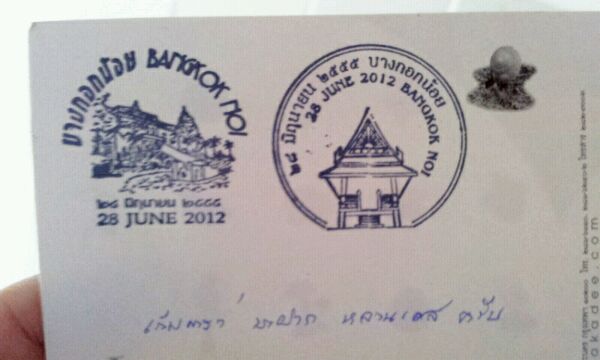 บางกอกน้อย BANGKOK NOI
๒๘ มิถุนายน ๒๕๕๕
28 JUNE 2012
๒๘ มิถุนายน ๒๕๕๕ บางกอกน้อย
28 JUNE 2012 BANGKOK NOI
มาฝาก หลาน ครับ
okadee.com